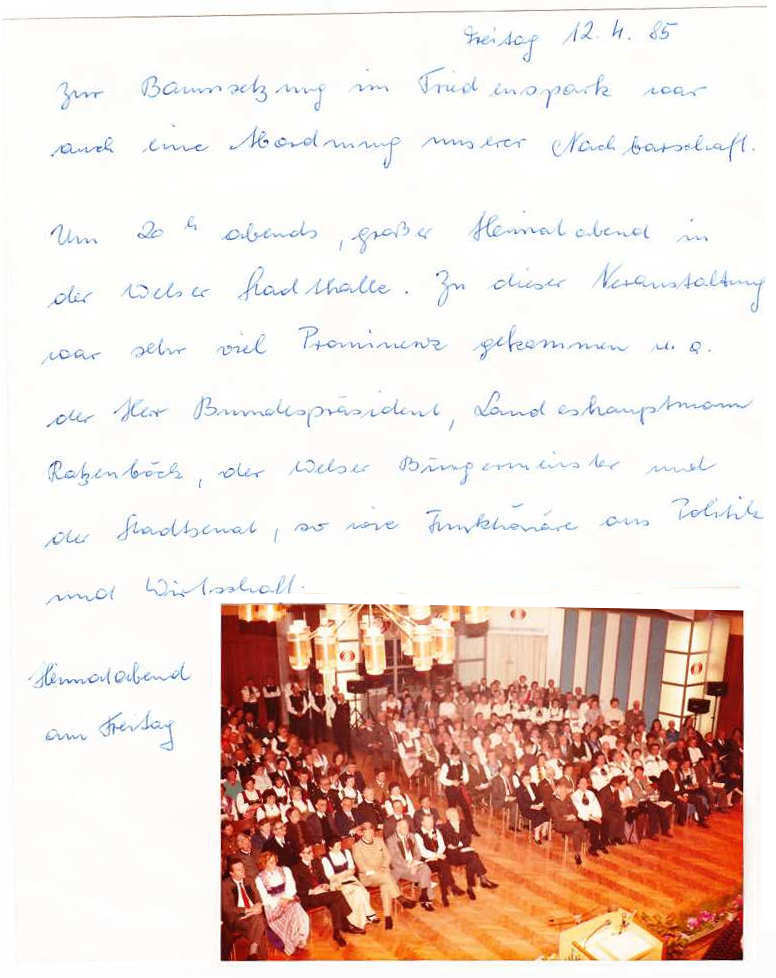 Freitag 12. 4. 85
Zur Baumsetzung im Friedenspark war
auch eine Abordnung unserer Nachbarschaft.
Um 20 h abends, großer Heimatabend in
der Welser Stadthalle. Zu dieser Veranstaltung
war sehr viel Prominenz gekommen u. a.
der Herr Bundespräsident, Landeshauptmann
Ratzenböck, der Welser Bürgermeister und
der Stadtsenat, so wie Funktionäre aus Politik
und Wirtschaft.
Heimatabend
am Freitag